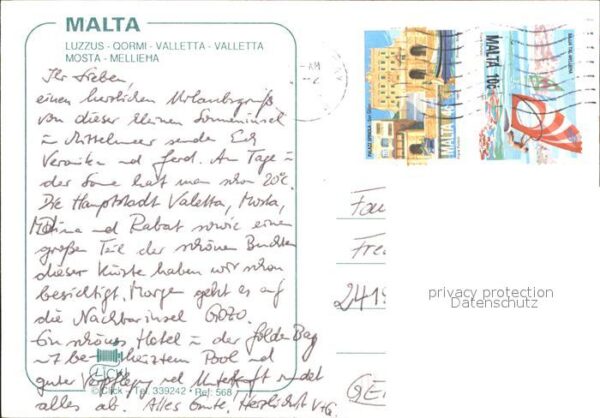 MALTA
LUZZUS - QORMI - VALLETTA - VALLETTA
MOSTA - MELLIEHA
Ihr Lieben
einen herzlichen Urlaubsgruß
von dieser kleinen Sonneninsel
im Mittelmeer senden Euch
Veronika und Ferd. Am Tage in
der Sonne hat man schon 20°C.
Die Hauptstadt Valetta, Mosta,
Mdina und Rabat sowie einen
großen Teil der schönen Buchten
dieser Küste haben wir schon
besichtigt. Morgen geht es auf
die Nachbarinsel GOZO.
Ein schönes Hotel in der Golden Bay
mit beheiztem Pool und
guter Verpflegung und Unterkunft rundet
alles ab. Alles Gute, Herzlichst V+G.
CLICK
© Click - Tel. 339242 - Ref: 568
PALAZZ SPINOLA
MALTA
MALTA 10c
Fam
Fre
2419
GE
privacy protection
Datenschutz